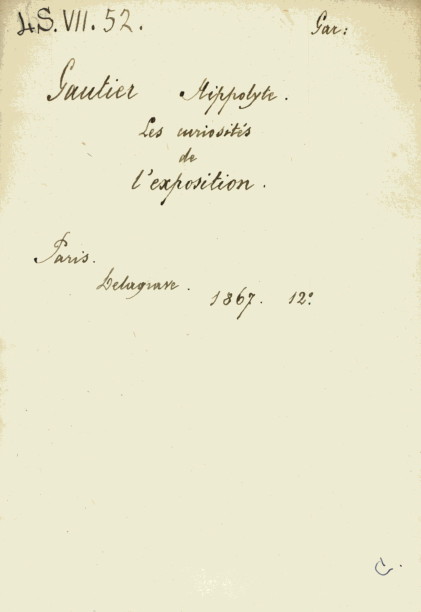 4S.VII.52. Gar:
Gautier Hippolyte.
Les curiosités
de
l'exposition.
Paris.
Delagrave. 1867. 12°
C.